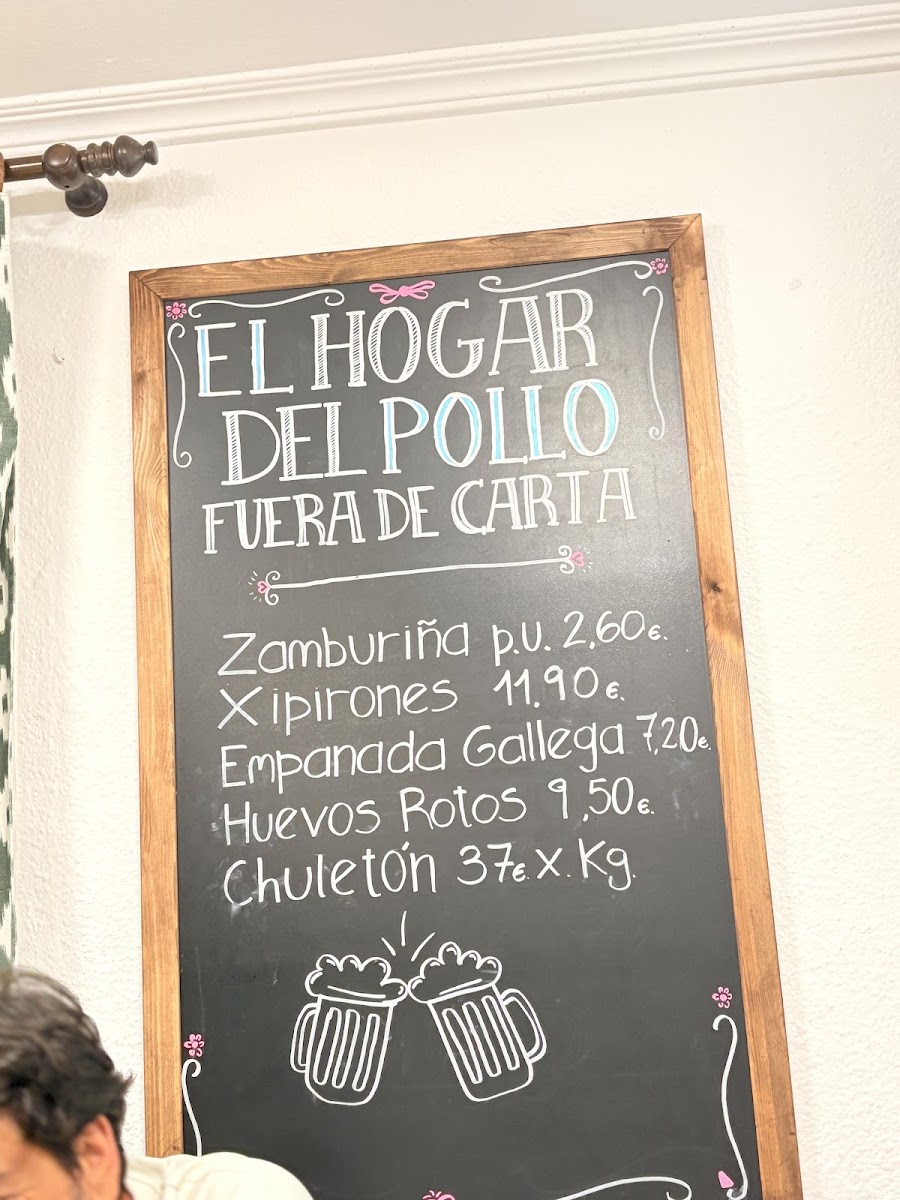 EL HOGAR
DEL POLLO
FUERA DE CARTA
Zamburiña p.u. 2,60€.
Xipirones 11,90€.
Empanada Gallega 7,20€.
Huevos Rotos 9,50€.
Chuletón 37€. X. Kg.